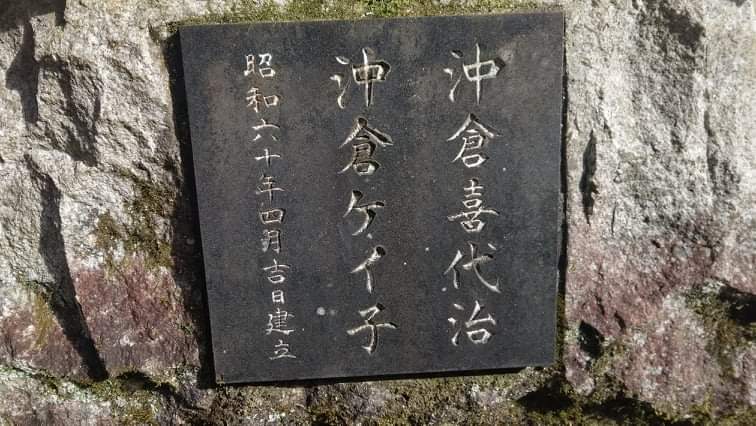 沖倉喜代治
沖倉ケイ子
昭和六十年四月吉日建立